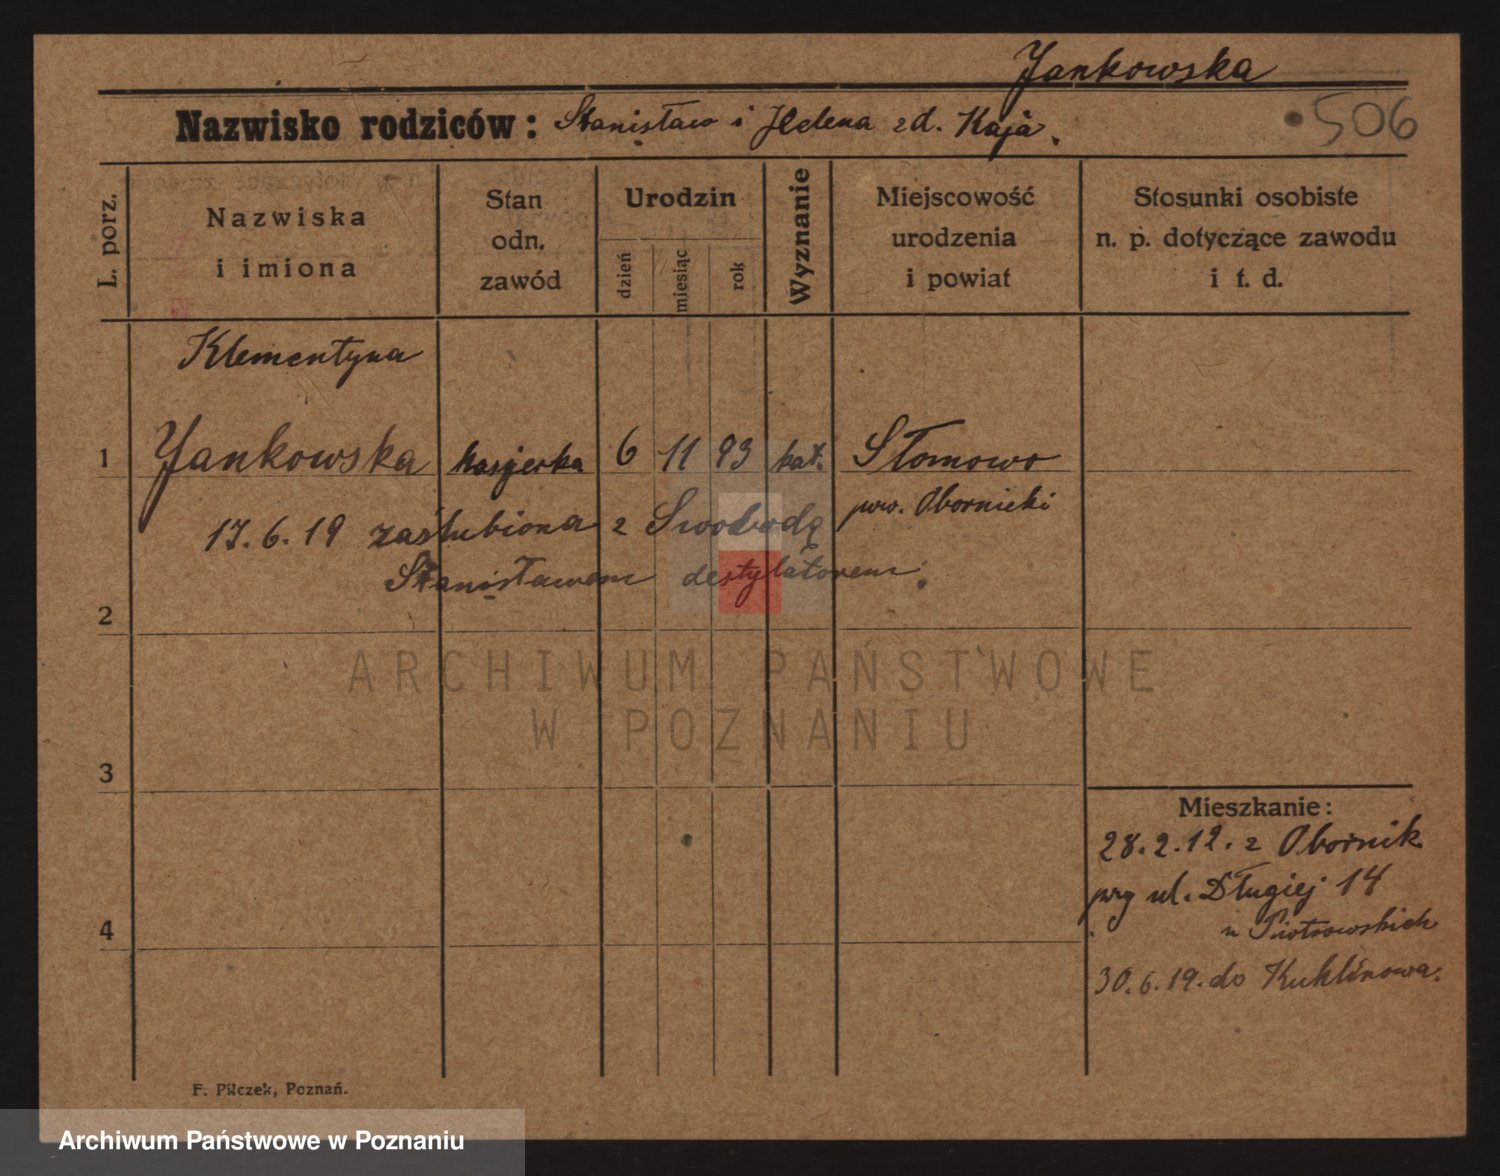 Jankowska
Nazwisko rodziców: Stanisław i Helena zd. Kaja.
506
L. porz.
Nazwiska
i imiona
Stan
odn.
zawód
Urodzin
dzień
miesiąc
rok
Wyznanie
Miejscowość
urodzenia
i powiat
Stosunki osobiste
n. p. dotyczące zawodu
i t. d.
Klementyna
1 Jankowska kasjerka 6 11 93 kat. Słomowo
pow. Obornicki
17.6.19 zaślubiona z Swobodą
Stanisławem destylatorem.
2
ARCHIWUM PAŃSTWOWE
W POZNANIU
3
Mieszkanie:
28.2.12. z Obornik
przy ul. Długiej 14
u Piotrowskich
4
30.6.19. do Kuklinowa.
F. Pilczek, Poznań.
Archiwum Państwowe w Poznaniu